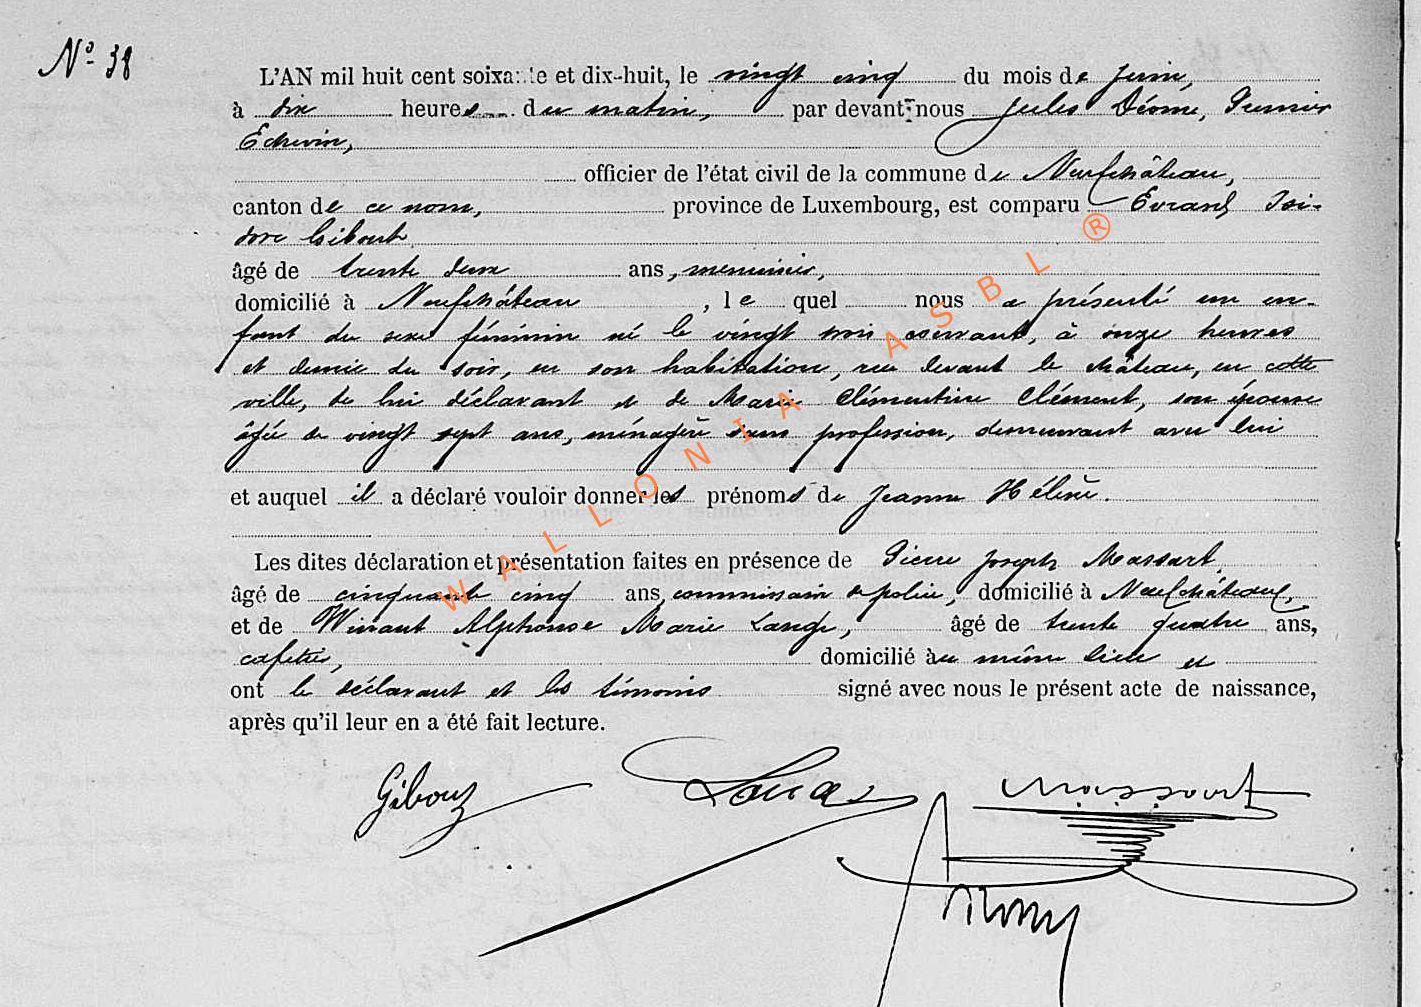 N° 38
L'AN mil huit cent soixante et dix-huit, le vingt cinq du mois de Juin,
à dix heures du matin, par devant nous Jules Déome, Premier
Echevin,
officier de l'état civil de la commune de Neufchâteau,
canton de ce nom, province de Luxembourg, est comparu Evrard Isi-
dore Gibout
âgé de trente deux ans, menuisier,
domicilié à Neufchâteau, lequel nous a présenté un en-
fant du sexe féminin né le vingt trois courant, à onze heures
et demie du soir, en son habitation, rue devant le château, en cette
ville, de lui déclarant et de Marie Clémentine Clément, son épouse
âgée de vingt sept ans, ménagère sans profession, demeurant avec lui
et auquel il a déclaré vouloir donner les prénoms de Jeanne Hélène.
Les dites déclaration et présentation faites en présence de Pierre Joseph Massart,
âgé de cinquante cinq ans, commissaire de police, domicilié à Neufchâteau,
et de Winant Alphonse Marie Lange, âgé de trente quatre ans,
cafetier, domicilié au même lieu et
ont le déclarant et les témoins signé avec nous le présent acte de naissance,
après qu'il leur en a été fait lecture.
Massart
WALLONIA ASBL ®